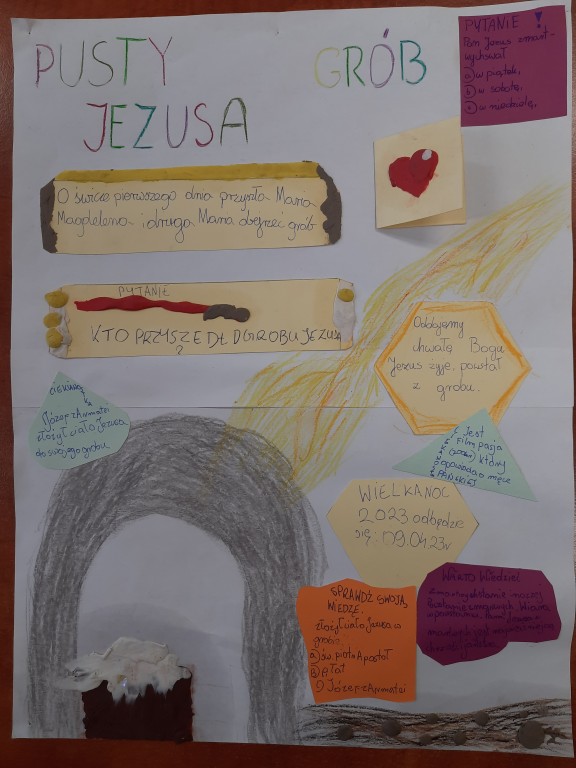 PUSTY GRÓB
JEZUSA
PYTANIE !
Pan Jezus zmart-
wychwstał
a) w piątek,
b) w sobotę,
c) w niedzielę,
O świcie pierwszego dnia przyszła Maria
Magdalena i druga Maria obejrzeć grób
PYTANIE
KTO PRZYSZEDŁ DO GROBU JEZUSA
?
Oddajemy
chwałę Bogu
Jezus żyje, powstał
z grobu.
CIEKAWOSTKA
Józef z Arymatei
złożył ciało Jezusa
do swojego grobu
Jest
Film pasja
który
opowiada o męce
PAŃSKIEJ
WIELKANOC
2023 odbędzie
się: 09.04.23r
SPRAWDŹ SWOJĄ
WIEDZĘ.
złożył ciało Jezusa w
grobie
a) św. piotr Apostał
b) piłat
c) Józef z Arymatei
WARTO WIEDZIEĆ